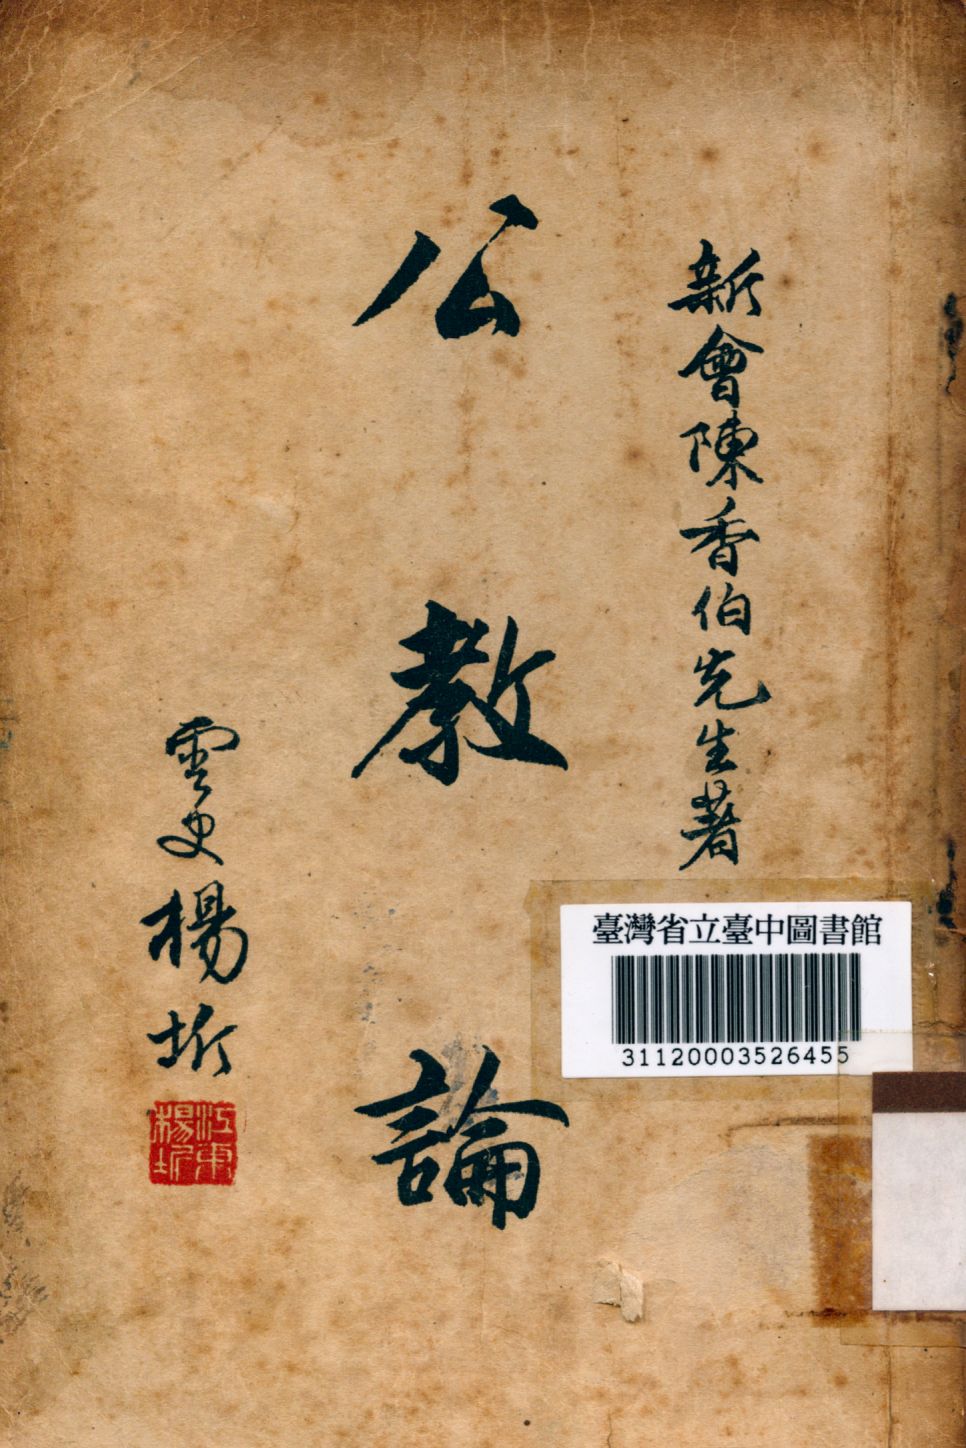 新會陳香伯先生著
公教論
雲史楊圻
江東楊圻
臺灣省立臺中圖書館
31120003526455